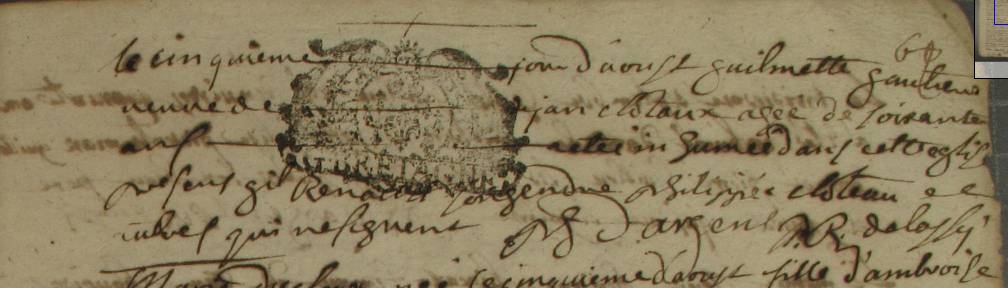 le cinquième jour d'aoust guilmette gautier
veuve de jan clotaux agee de soixante
ans a etée in humée dans cette eglise
presens gil Renault son gendre philippe cloteau e
aultres qui ne signent d'argent
née le cinquième d'aoust fille d'ambroise